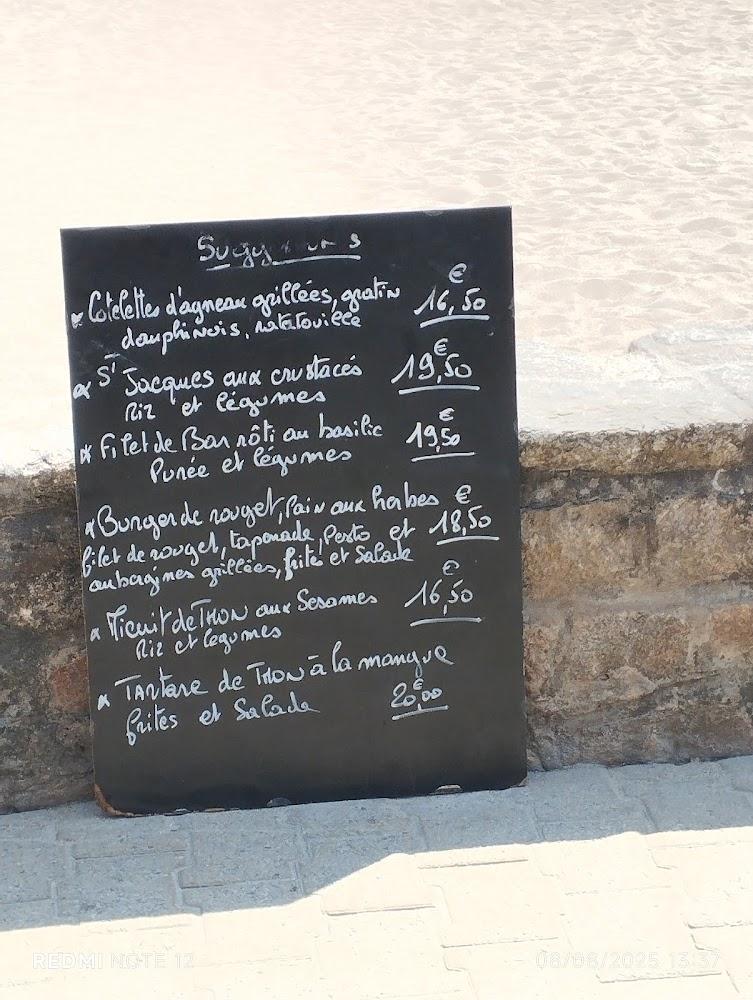 * Cotelettes d'agneau grillées, gratin € 16,50
dauphinois, ratatouille
* St Jacques aux crustacés € 19,50
Riz et légumes
* Filet de Bar rôti au basilic € 19,50
Purée et légumes
* Burger de rouget, Pain aux herbes € 18,50
filet de rouget, taponade, Pesto et
aubergines grillées, frites et Salade
* Micuit de THON aux Sesames € 16,50
Riz et légumes
* TARtare de THON à la mangue
frites et Salade 20,00 €
REDMI NOTE 12 06/06/2025 13:37